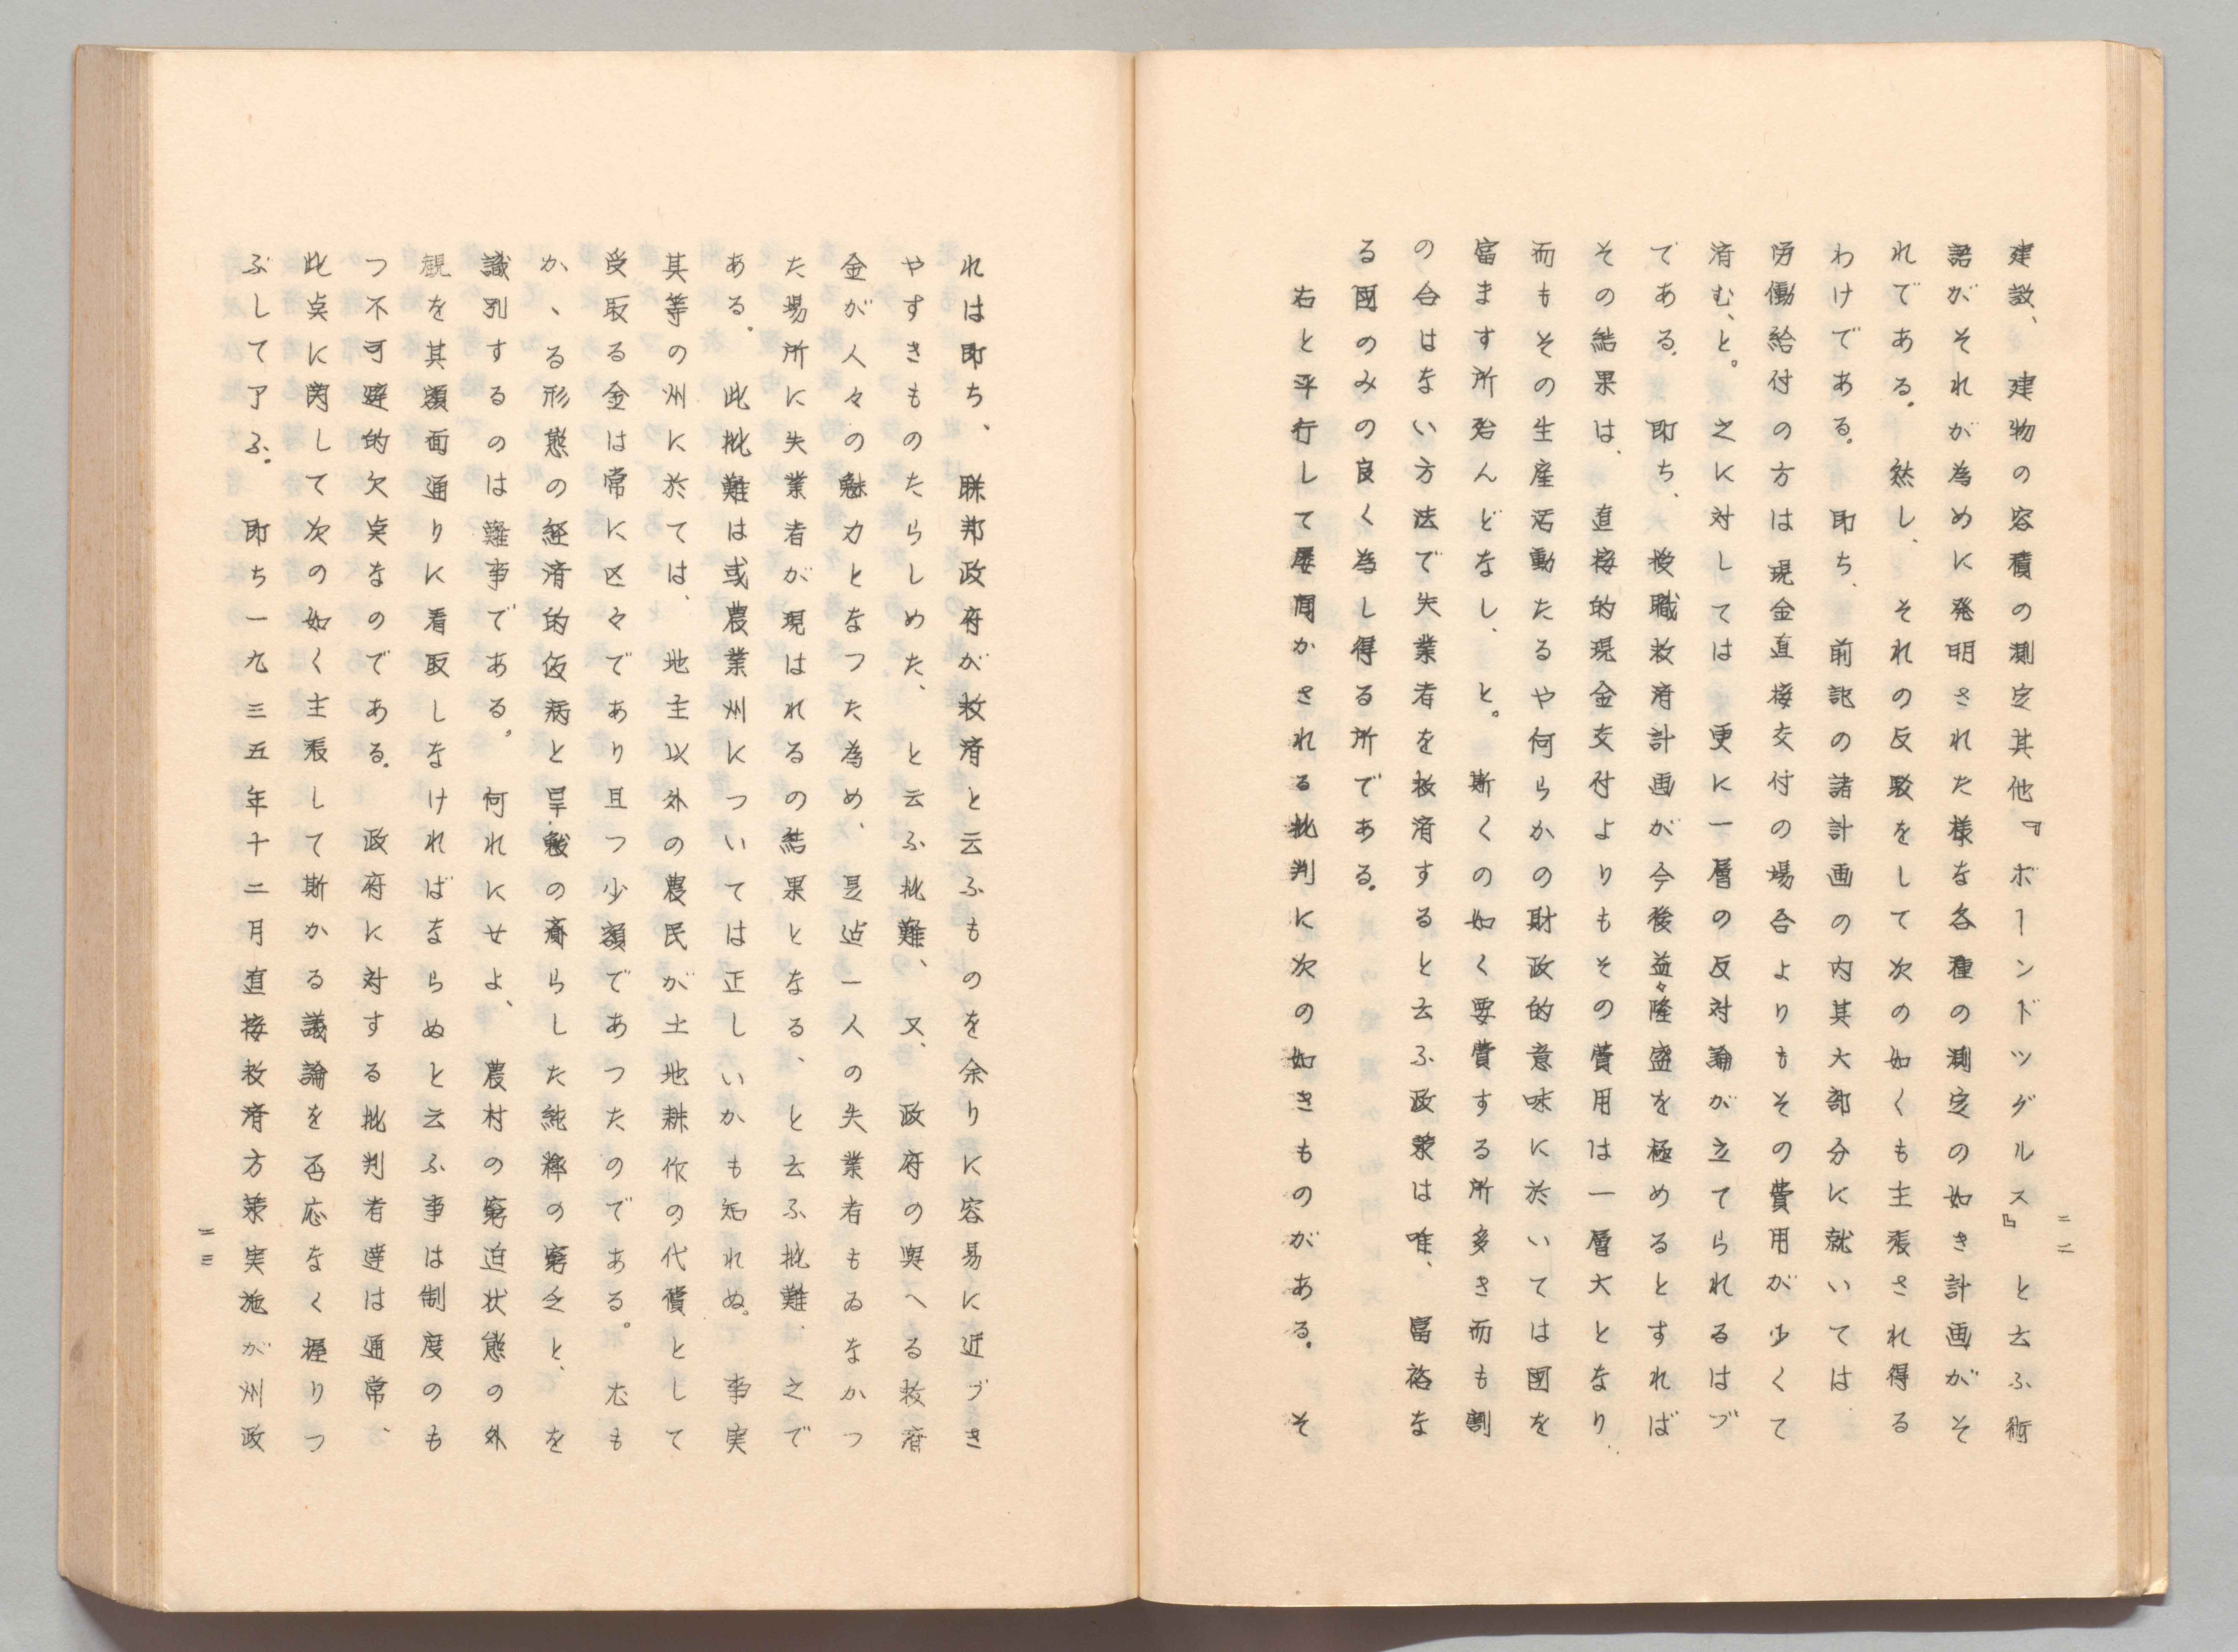 二二
建設、建物の容積の測定其他『ボーンドツグルス』と云ふ術
語がそれが為めに発明された様な各種の測定の如き計画がそ
れである。然し、それの反駁をして次の如くも主張され得る
わけである。即ち、前記の諸計画の内其大部分に就いては、
労働給付の方は現金直接交付の場合よりもその費用が少くて
済む、と。之に対しては更に一層の反対論が立てられるはづ
である。即ち、授職救済計画が今後益々隆盛を極めるとすれば
その結果は、直接的現金交付よりもその費用は一層大となり、
而もその生産活動たるや何らかの財政的意味に於いては国を
富ます所殆んどなし、と。斯くの如く要費する所多き而も割
の合はない方法で失業者を救済すると云ふ政策は唯、富裕な
る国のみの良く為し得る所である。
右と平行して屡聞かされる批判に次の如きものがある。そ
れは即ち、聯邦政府が救済と云ふものを余りに容易に近づき
やすきものたらしめた、と云ふ批難、又、政府の与へる救済
金が人々の魅力となつた為め、是迄一人の失業者もゐなかつ
た場所に失業者が現はれるの結果となる、と云ふ批難、之で
ある。此批難は或農業州については正しいかも知れぬ。事実
其等の州に於ては、地主以外の農民が土地耕作の代償として
受取る金は常に区々であり且つ少額であつたのである。尤も
か、る形態の経済的仮病と旱魃の齎らした純粋の窮乏と、を
識別するのは難事である。何れにせよ、農村の窮迫状態の外
観を其額面通りに看取しなければならぬと云ふ事は制度のも
つ不可避的欠点なのである。政府に対する批判者達は通常、
此点に関して次の如く主張して斯かる議論を否応なく握りつ
ぶして了ふ。即ち一九三五年十二月直接救済方策実施が州政
二三